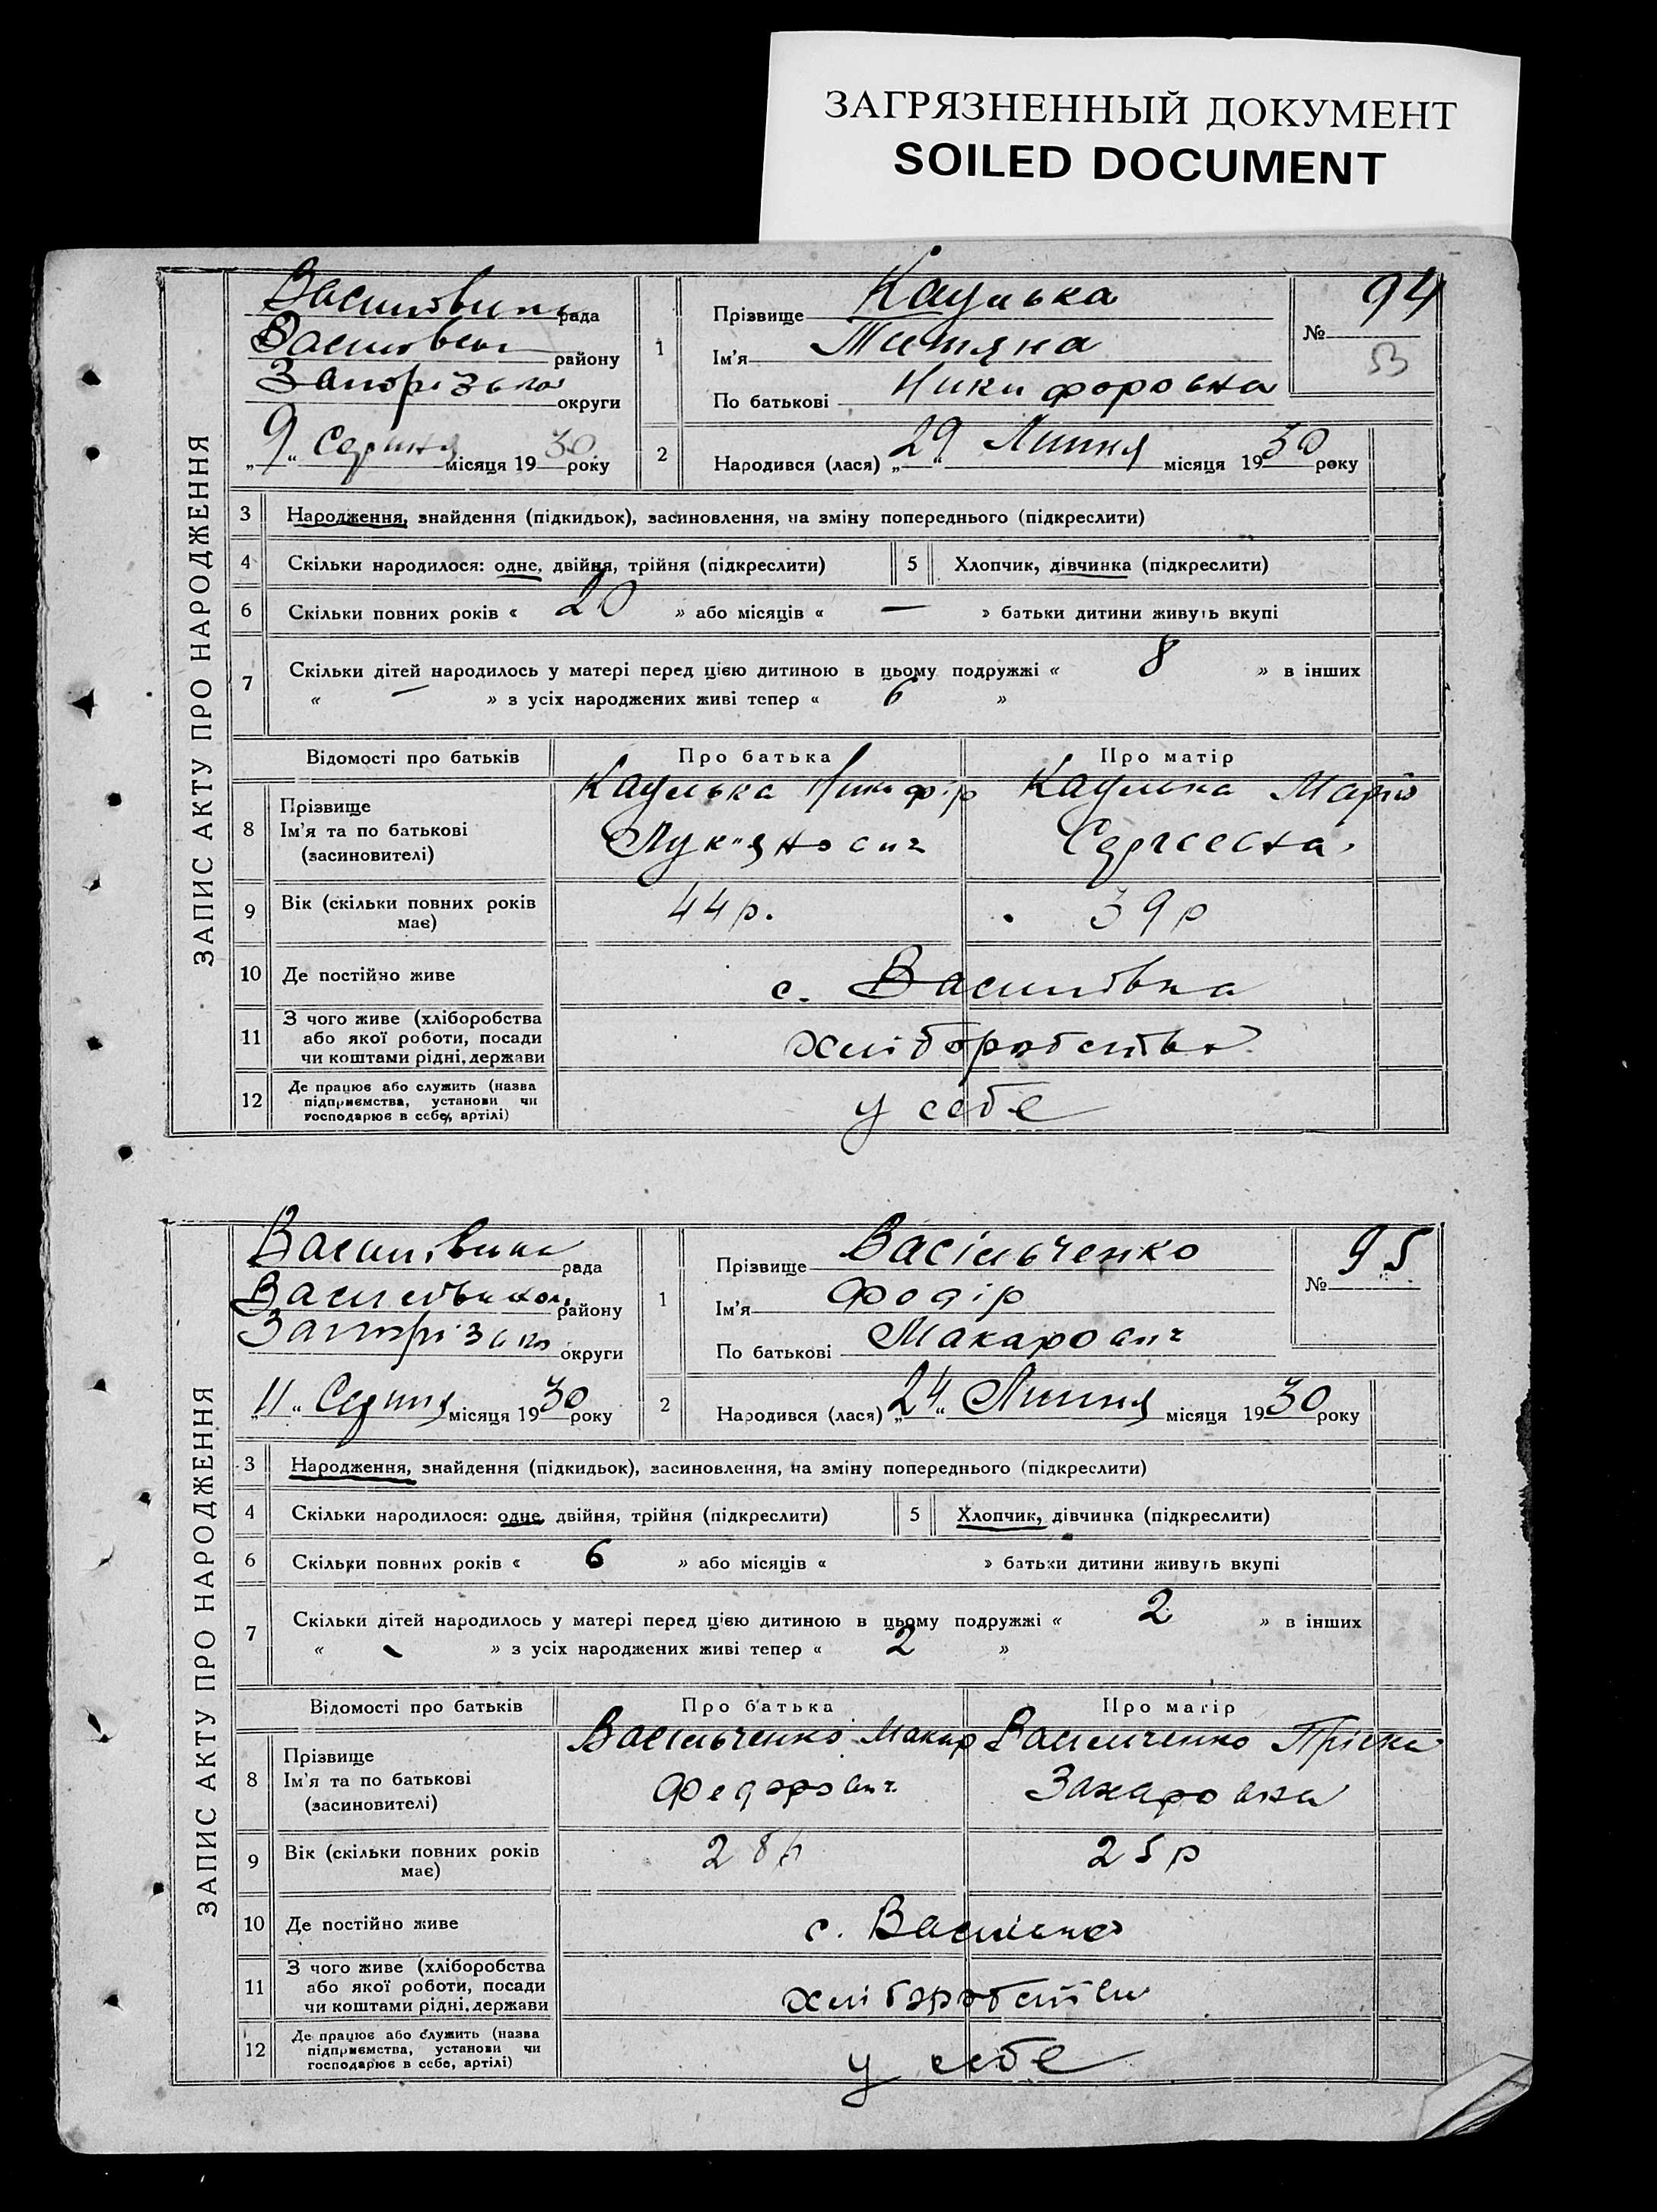 ЗАГРЯЗНЕННЫЙ ДОКУМЕНТ
SOILED DOCUMENT
ЗАПИС АКТУ ПРО НАРОДЖЕННЯ
рада
району
округи
„9“ Серпня місяця 1930 року
1
Прізвище
Ім'я Тетяна
По батькові Никифоровна
№ 94
2
Народився (лася) „29“ Липня місяця 1930 року
3 Народження, знайдення (підкидьок), засиновлення, на зміну попереднього (підкреслити)
4 Скільки народилося: одне, двійня, трійня (підкреслити) 5 Хлопчик, дівчинка (підкреслити)
6 Скільки повних років « 20 » або місяців « — » батьки дитини живуть вкупі
7 Скільки дітей народилось у матері перед цією дитиною в цьому подружжі « 8 » в інших
« — » з усіх народжених живі тепер « 6 »
Відомості про батьків Про батька Про матір
8 Прізвище
Ім'я та по батькові
(засиновителі)
Никифір Лук"янович
Марія Сергеевна
9 Вік (скільки повних років має) 44 р. 39 р
10 Де постійно живе с. Василівка
11 З чого живе (хліборобства
або якої роботи, посади
чи коштами рідні, держави
хліборобство
12 Де працює або служить (назва
підприємства, установи чи
господарює в себе, артілі)
у себе
ЗАПИС АКТУ ПРО НАРОДЖЕННЯ
рада
району
округи
„11“ Серпня місяця 1930 року
1
Прізвище Васільченко
Ім'я Федір
По батькові Макарович
№ 95
2
Народився (лася) „24“ Липня місяця 1930 року
3 Народження, знайдення (підкидьок), засиновлення, на зміну попереднього (підкреслити)
4 Скільки народилося: одне, двійня, трійня (підкреслити) 5 Хлопчик, дівчинка (підкреслити)
6 Скільки повних років « 6 » або місяців « » батьки дитини живуть вкупі
7 Скільки дітей народилось у матері перед цією дитиною в цьому подружжі « 2 » в інших
« - » з усіх народжених живі тепер « 2 »
Відомості про батьків Про батька Про матір
8 Прізвище
Ім'я та по батькові
(засиновителі)
Васільченко Макар Федорович
Васильченко Пріска Захаровна
9 Вік (скільки повних років має) 28 р 25 р
10 Де постійно живе с.
11 З чого живе (хліборобства
або якої роботи, посади
чи коштами рідні, держави
12 Де працює або служить (назва
підприємства, установи чи
господарює в себе, артілі)
у себе